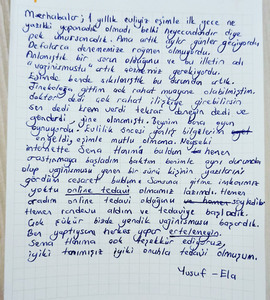 Merhabalar; 1 yıllık evliyiz eşimle ilk gece ne
yazıkki yapamadık olmadı belki heyecandandır diye
pek umursamadık. Ama artık aylar günler geçiyordu
Defalarca denememize rağmen olmuyordu.
Anlamıştık bir sorun olduğunu ve bu illetin adı
"vajinismustu" artık çözmemiz gerekiyordu.
Eşimde bende sıkılmıştık bu durumdan artık.
Jinekoloğa gittim çok rahat muayene olabilmiştim.
doktor dedi çok rahat ilişkiye girebilirsin
sen dedi krem verdi tekrar deneyin dedi ve
gönderdi yine olmamıştı. Beynim bana oyun
oynuyordu. Evlilik öncesi yanlış bilgilerim
engeldi eşimle mutlu olmama. Neyseki
internette Sema Hanımı buldum hemen
araştırmaya başladım baktım benimle aynı durumda
olup vajinismusu yenen bir sürü kişinin yazılarını
gördüm cesaret buldum. Sonuna gitme imkanımız
yoktu online tedavi olmamız lazımdı. Hemen
aradım online tedavi olduğunu söylediler
Hemen randevu aldım ve tedaviye başladık.
Çok şükür bizde yendik vajinismusu başardık.
Ben yaptıysam herkes yapar ertelemeyin.
Sema Hanıma çok teşekkür ediyoruz,
iyiki tanımışız iyiki onunla tedavi olmuşum.
Yusuf - Ela